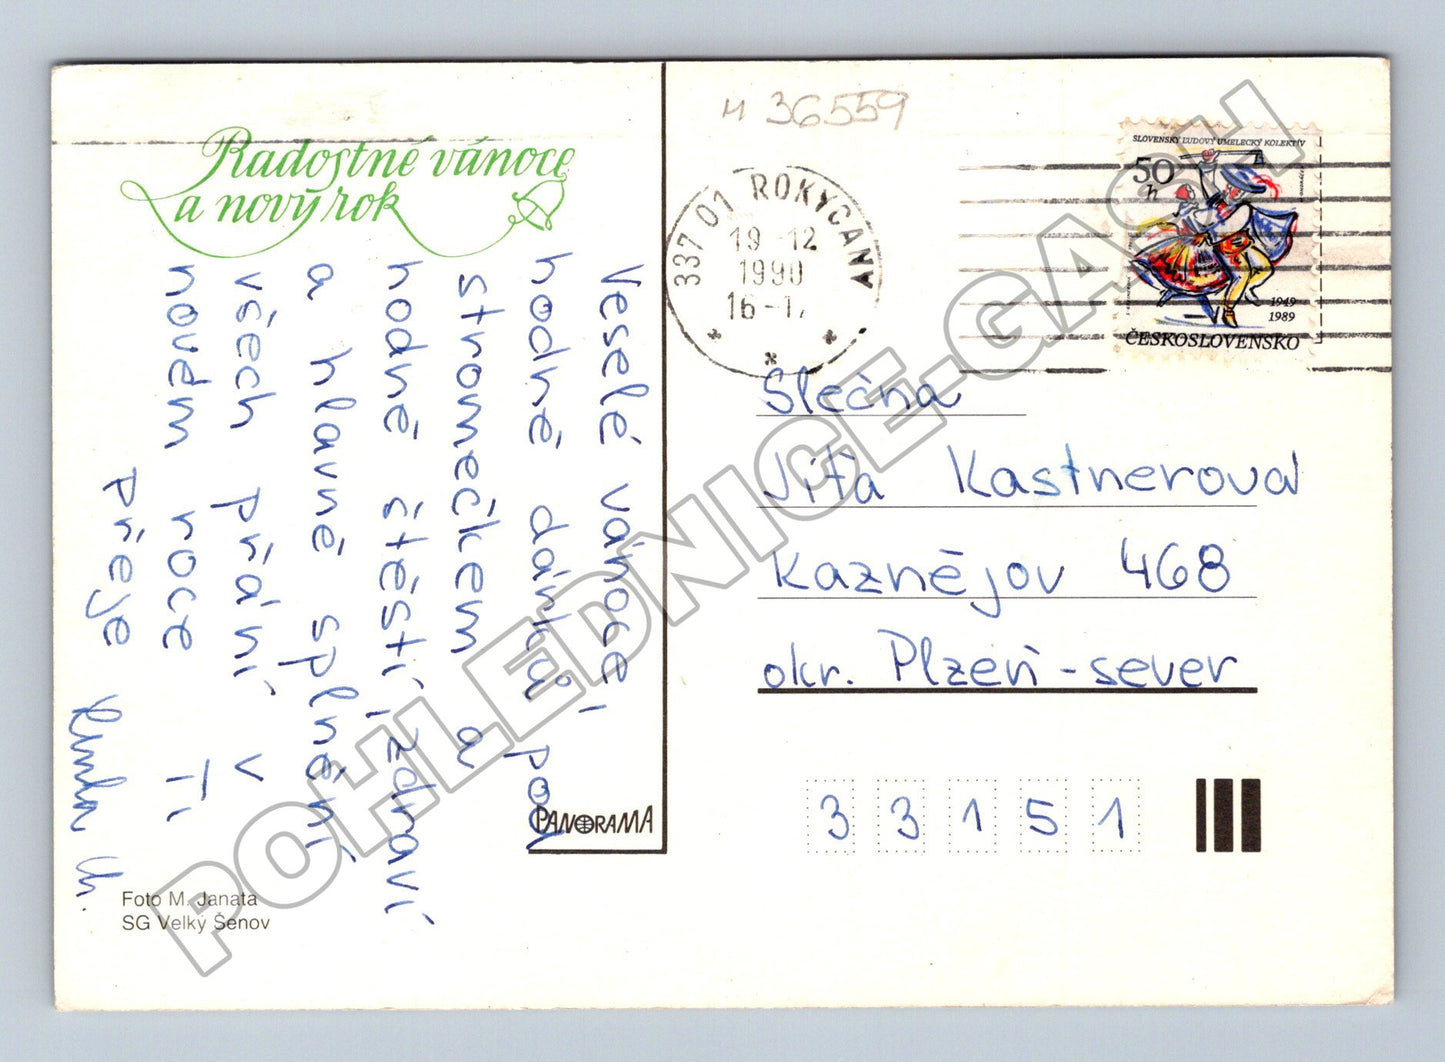 Radostné vánoce
a nový rok
Veselé vánoce,
hodně dárků pod
stromečkem a
hodně štěstí, zdraví
a hlavně splnění
všech přání v
novém roce Ti
přeje
Foto M. Janata
SG Velký Šenov
PANORAMA
36559
337 01 ROKYCANY
19 -12
1990
16-17
SLOVENSKÝ ĽUDOVÝ UMELECKÝ KOLEKTÍV
50
h
1949
1989
ČESKOSLOVENSKO
Slečna
Jiťa Kastnerová
Kaznějov 468
okr. Plzeň - sever
33151
POHLEDNICE-GASH